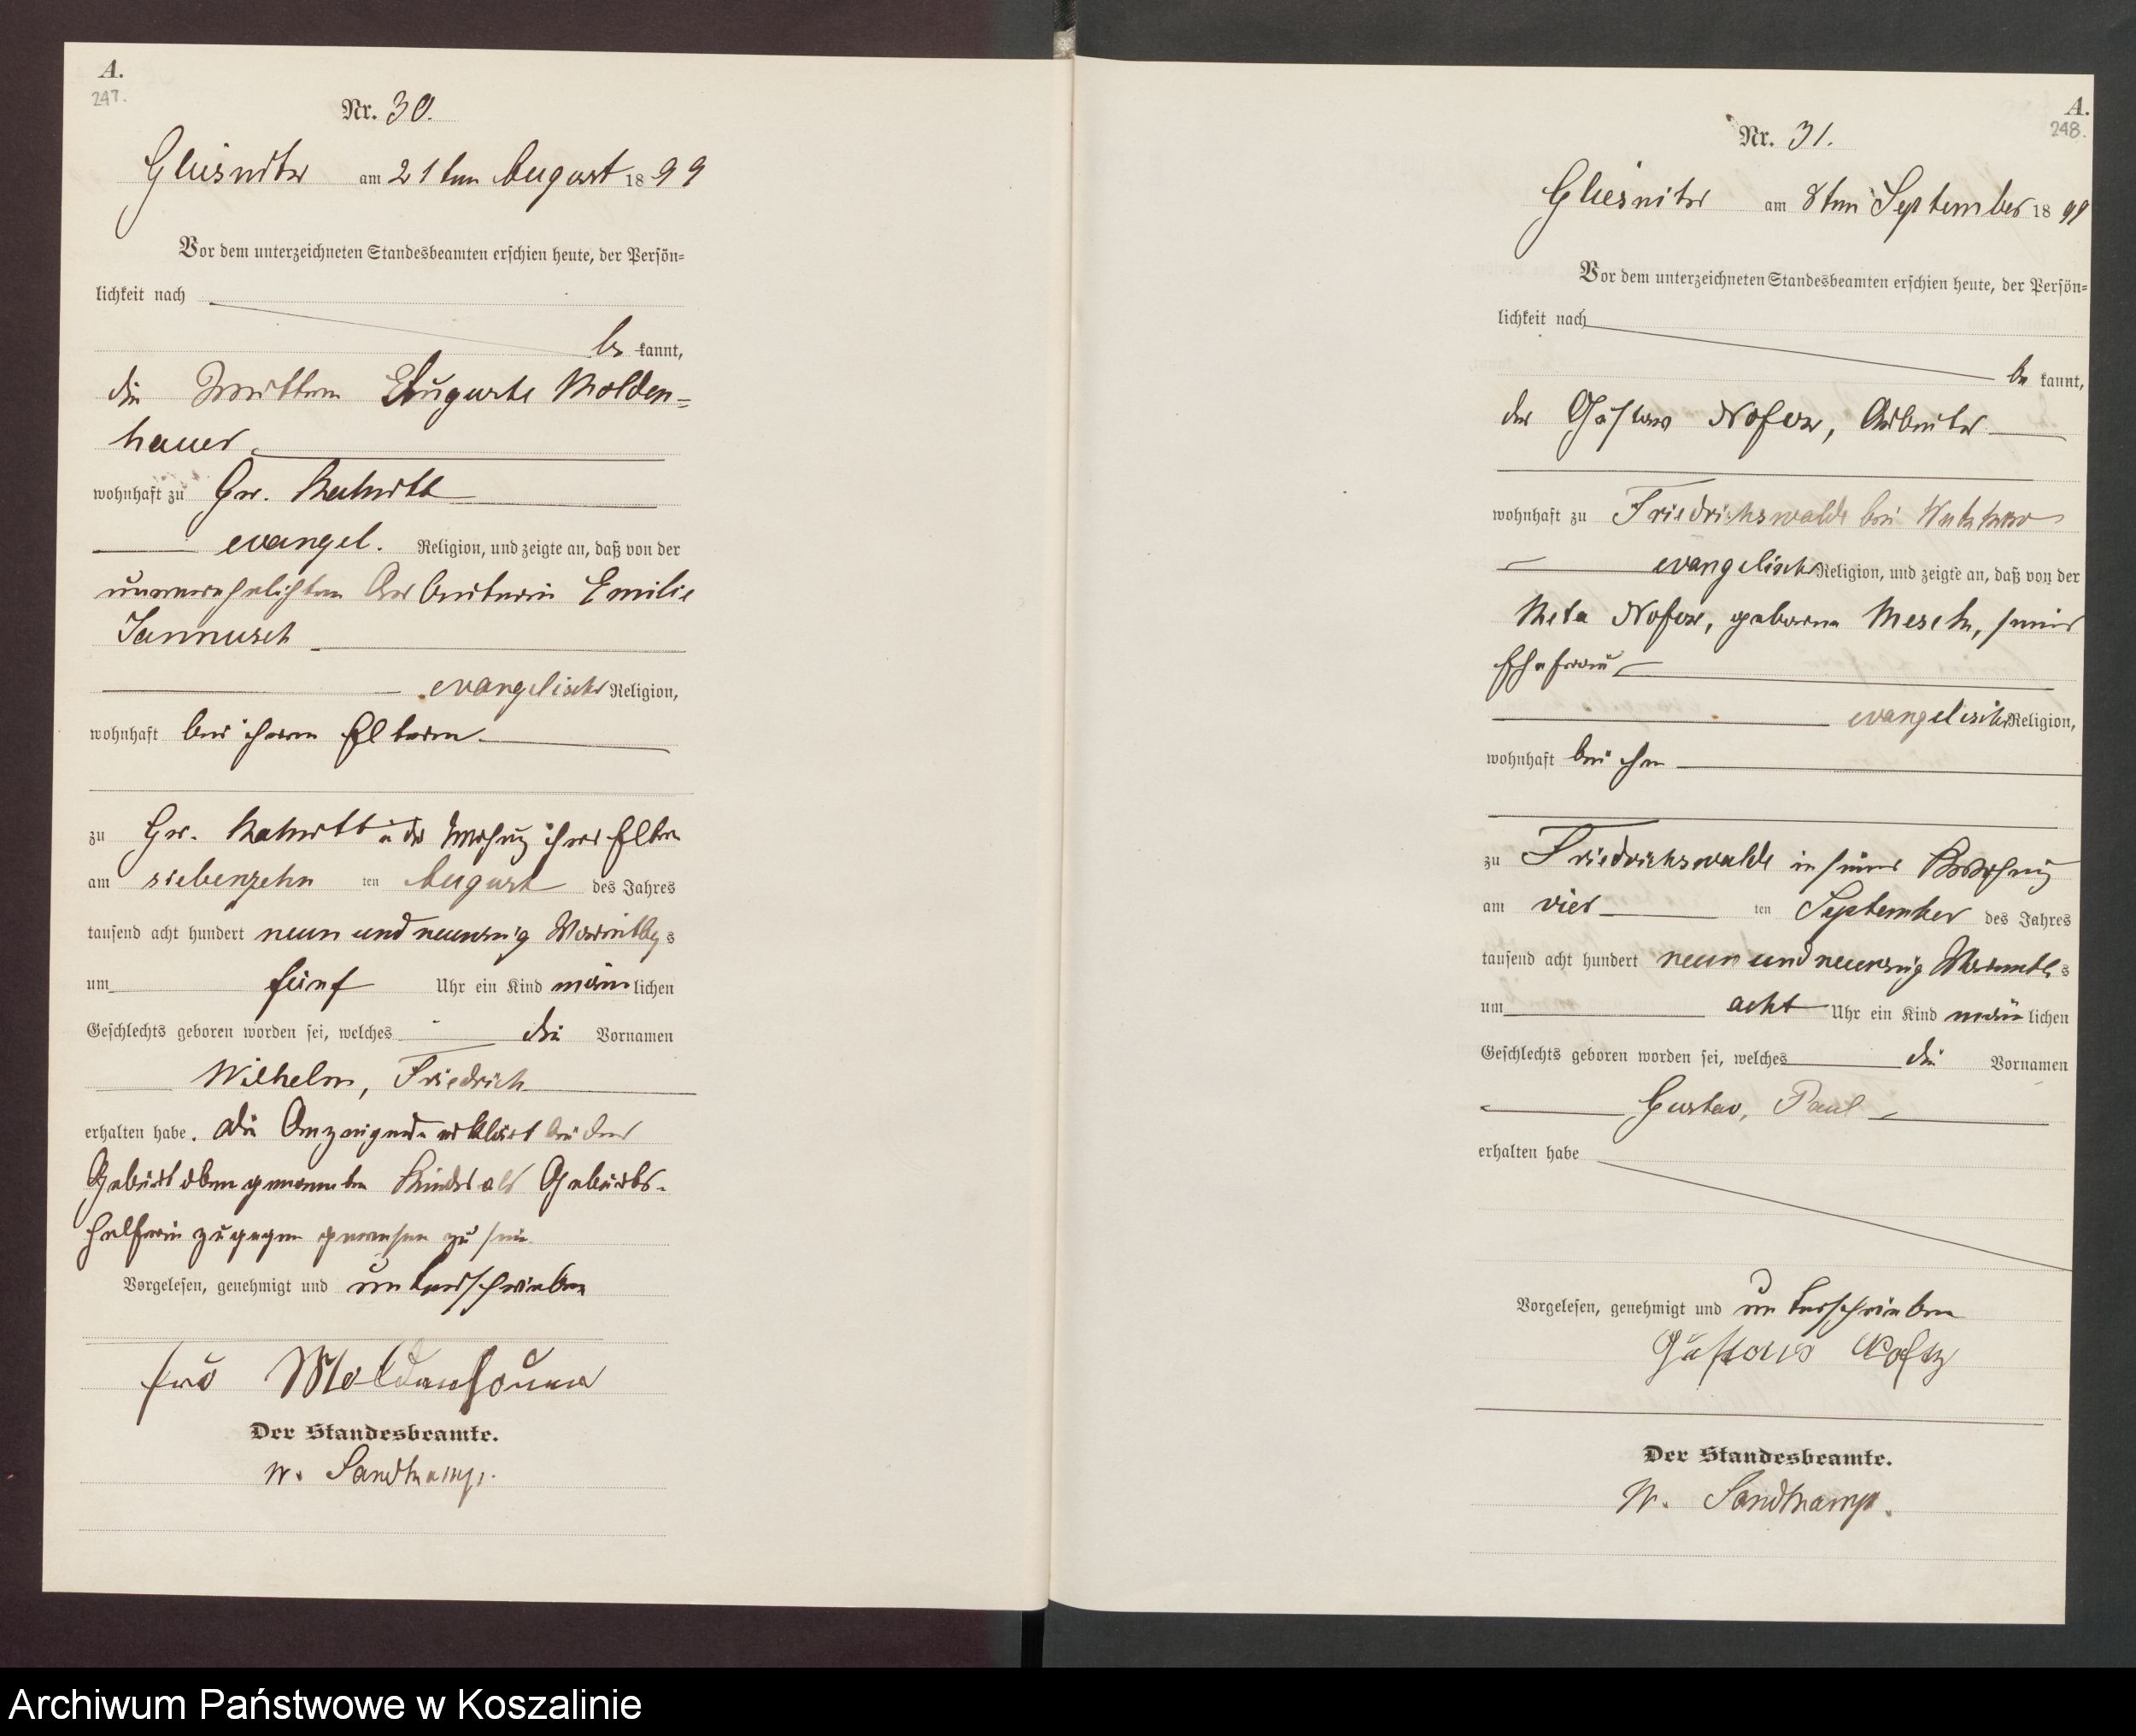 A.
247.
Nr. 30.
Gliesnitz am 21ten August 1899
Vor dem unterzeichneten Standesbeamten erschien heute, der Persön=
lichkeit nach
be kannt,
die Auguste Molden=
hauer
wohnhaft zu Gr.
evangel. Religion, und zeigte an, daß von der
unverehelichten Arbeiterin Emilie
Jannusch
evangelischer Religion,
wohnhaft bei ihren Eltern
zu Gr. in der ihrer Eltern
am siebenzehn ten August des Jahres
tausend acht hundert neun und neunzig Vormittags
um fünf Uhr ein Kind männlichen
Geschlechts geboren worden sei, welches die Vornamen
Wilhelm, Friedrich
erhalten habe. Die Anzeigende erklärt bei der
Geburt oben genannten Kindes als Geburts-
helferin zugegen gewesen zu sein.
Vorgelesen, genehmigt und unterschrieben
frau Moldenhauer
Der Standesbeamte.
W. Sandkamp.
A.
248.
Nr. 31.
Gliesnitz am 8ten September 1899
Vor dem unterzeichneten Standesbeamten erschien heute, der Persön=
lichkeit nach
be kannt,
der Gustav Nofz, Arbeiter
wohnhaft zu Friedrichswalde bei
evangelischer Religion, und zeigte an, daß von der
Meta Nofz, geborene Mesch, seiner
Ehefrau
evangelischer Religion,
wohnhaft bei ihm
zu Friedrichswalde in seiner Wohnung
am vier ten September des Jahres
tausend acht hundert neun und neunzig Vormittags
um acht Uhr ein Kind männlichen
Geschlechts geboren worden sei, welches die Vornamen
Gustav, Paul
erhalten habe
Vorgelesen, genehmigt und unterschrieben
Gustav Nofz
Der Standesbeamte.
W. Sandkamp.
Archiwum Państwowe w Koszalinie